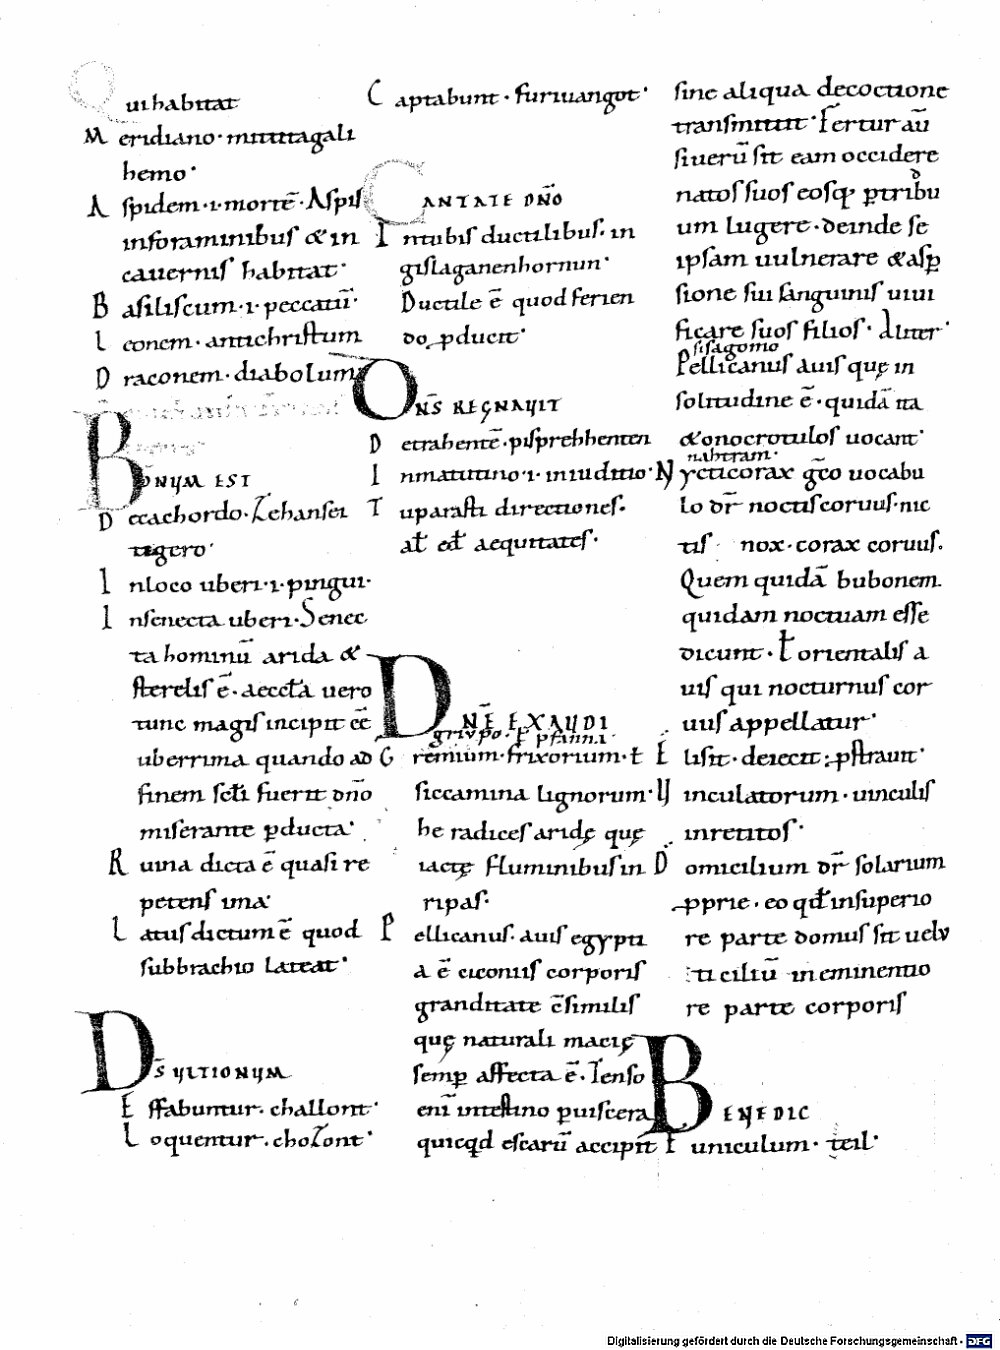 Qui habitat
Meridiano · mittitagali
hemo ·
Aspidem · i · mortē · Aspis
inforaminibus & in
cavernis habitat ·
Basiliscum · i · peccatū ·
Leonem · antichristum
Draconem · diabolum
BONUM EST
Decachordo · Zehansei
tigero ·
Inloco uberi · i · pingui ·
Insenecta uberi · Senec
ta hominū arida &
sterelis ē · aeccła uero
tunc magis incipit eē
uberrima quando ad
finem scłi fuerit dnō
miserante pducta ·
Ruina dicta ē quasi re
petens ima ·
Latus dictum ē quod
subbrachio lateat ·
DS̄ ULTIONUM
Effabuntur · challont ·
Loquentur · cholont ·
Captabunt · furiuangot ·
CANTATE DNŌ
Intubis ductilibus · in
gislaganenhornun ·
Ductile ē quod ferien
do pducit ·
DN̄S REGNAUIT
Detrahentē · pisprehhenten
Inmatutino · i · iniuditio ·
Tuparasti directiones ·
at̄ ed̄ aequitates ·
DNĒ EXAUDI
Gremium · frixorium · ł
siccamina lignorum ·
he radices aridę quę
iactę fluminibus in
ripas ·
Pellicanus · auis egypti
a ē ciconiis corporis
granditate c̄similis
quę naturali macię
semp affecta ē · Ienso
enī intestino puiscera
quicqd escarū accipit
sine aliqua decoctione
transmittit · Fertur aū
siuerū sit eam occidere
natos suos eosq; ptribu
um lugere · deinde se
ipsam uulnerare & asp
sione sui sanguinis uiui
ficare suos filios · aliter ·
sisagomo
Pellicanus auis quę in
solitudine ē · quidā ita
& onocrotulos uocant ·
nahtram ·
Nycticorax gc̄o uocabu
lo dr̄ noctiscoruus · nic
tis nox · corax coruus ·
Quem quidā bubonem
quidam noctuam esse
dicunt · ł orientalis a
uis qui nocturnus cor
uus appellatur ·
Elisit · deiecit ; pstrauit ·
Uinculatorum · uinculis
inretitos ·
Domicilium dr̄ solarium
pprie · eo qđ insuperio
re parte domus sit uelu
ti ciliū in eminentio
re parte corporis
BENEDIC
Funiculum · teil ·
Digitalisierung gefördert durch die Deutsche Forschungsgemeinschaft - DFG